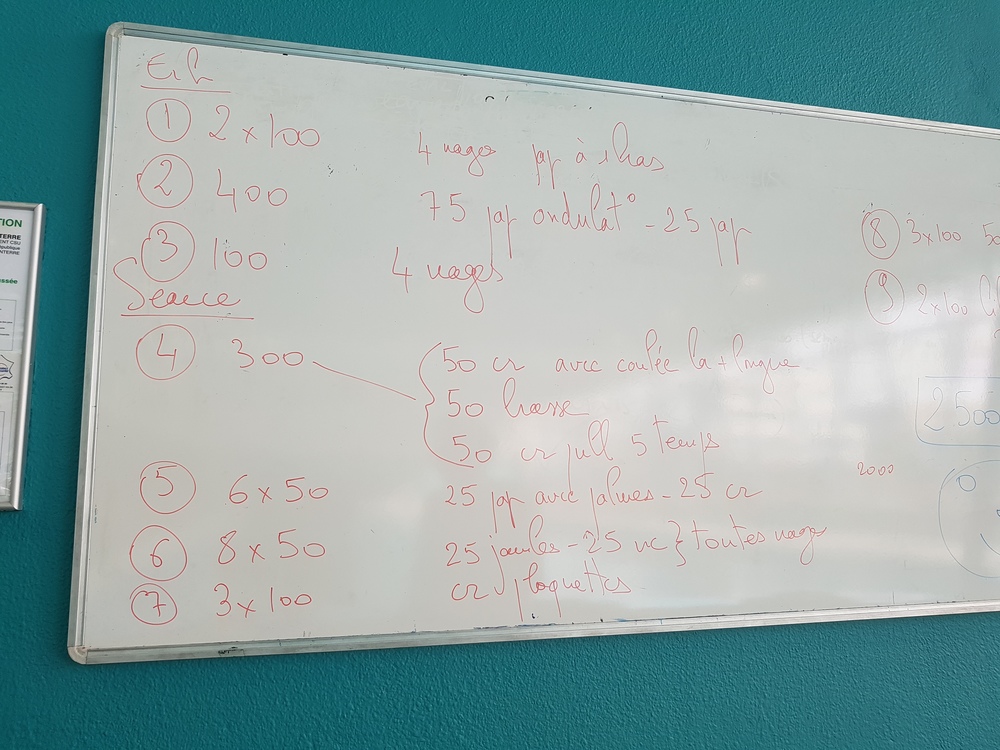 Ech
① 2 x 100 4 nages pap à 1 bras
② 400 75 pap ondulat° - 25 pap
③ 100 4 nages
Séance
④ 300
50 cr avec coulée la + longue
50 brasse
50 cr pull 5 temps
⑤ 6 x 50 25 pap avec palmes - 25 cr
⑥ 8 x 50 25 jambes - 25 nc } toutes nages
⑦ 3 x 100 cr plaquettes
⑧ 3x100 50
⑨ 2x100
2500
2000
TION
TERRE
ENT CSU
épublique
NTERRE
ussée